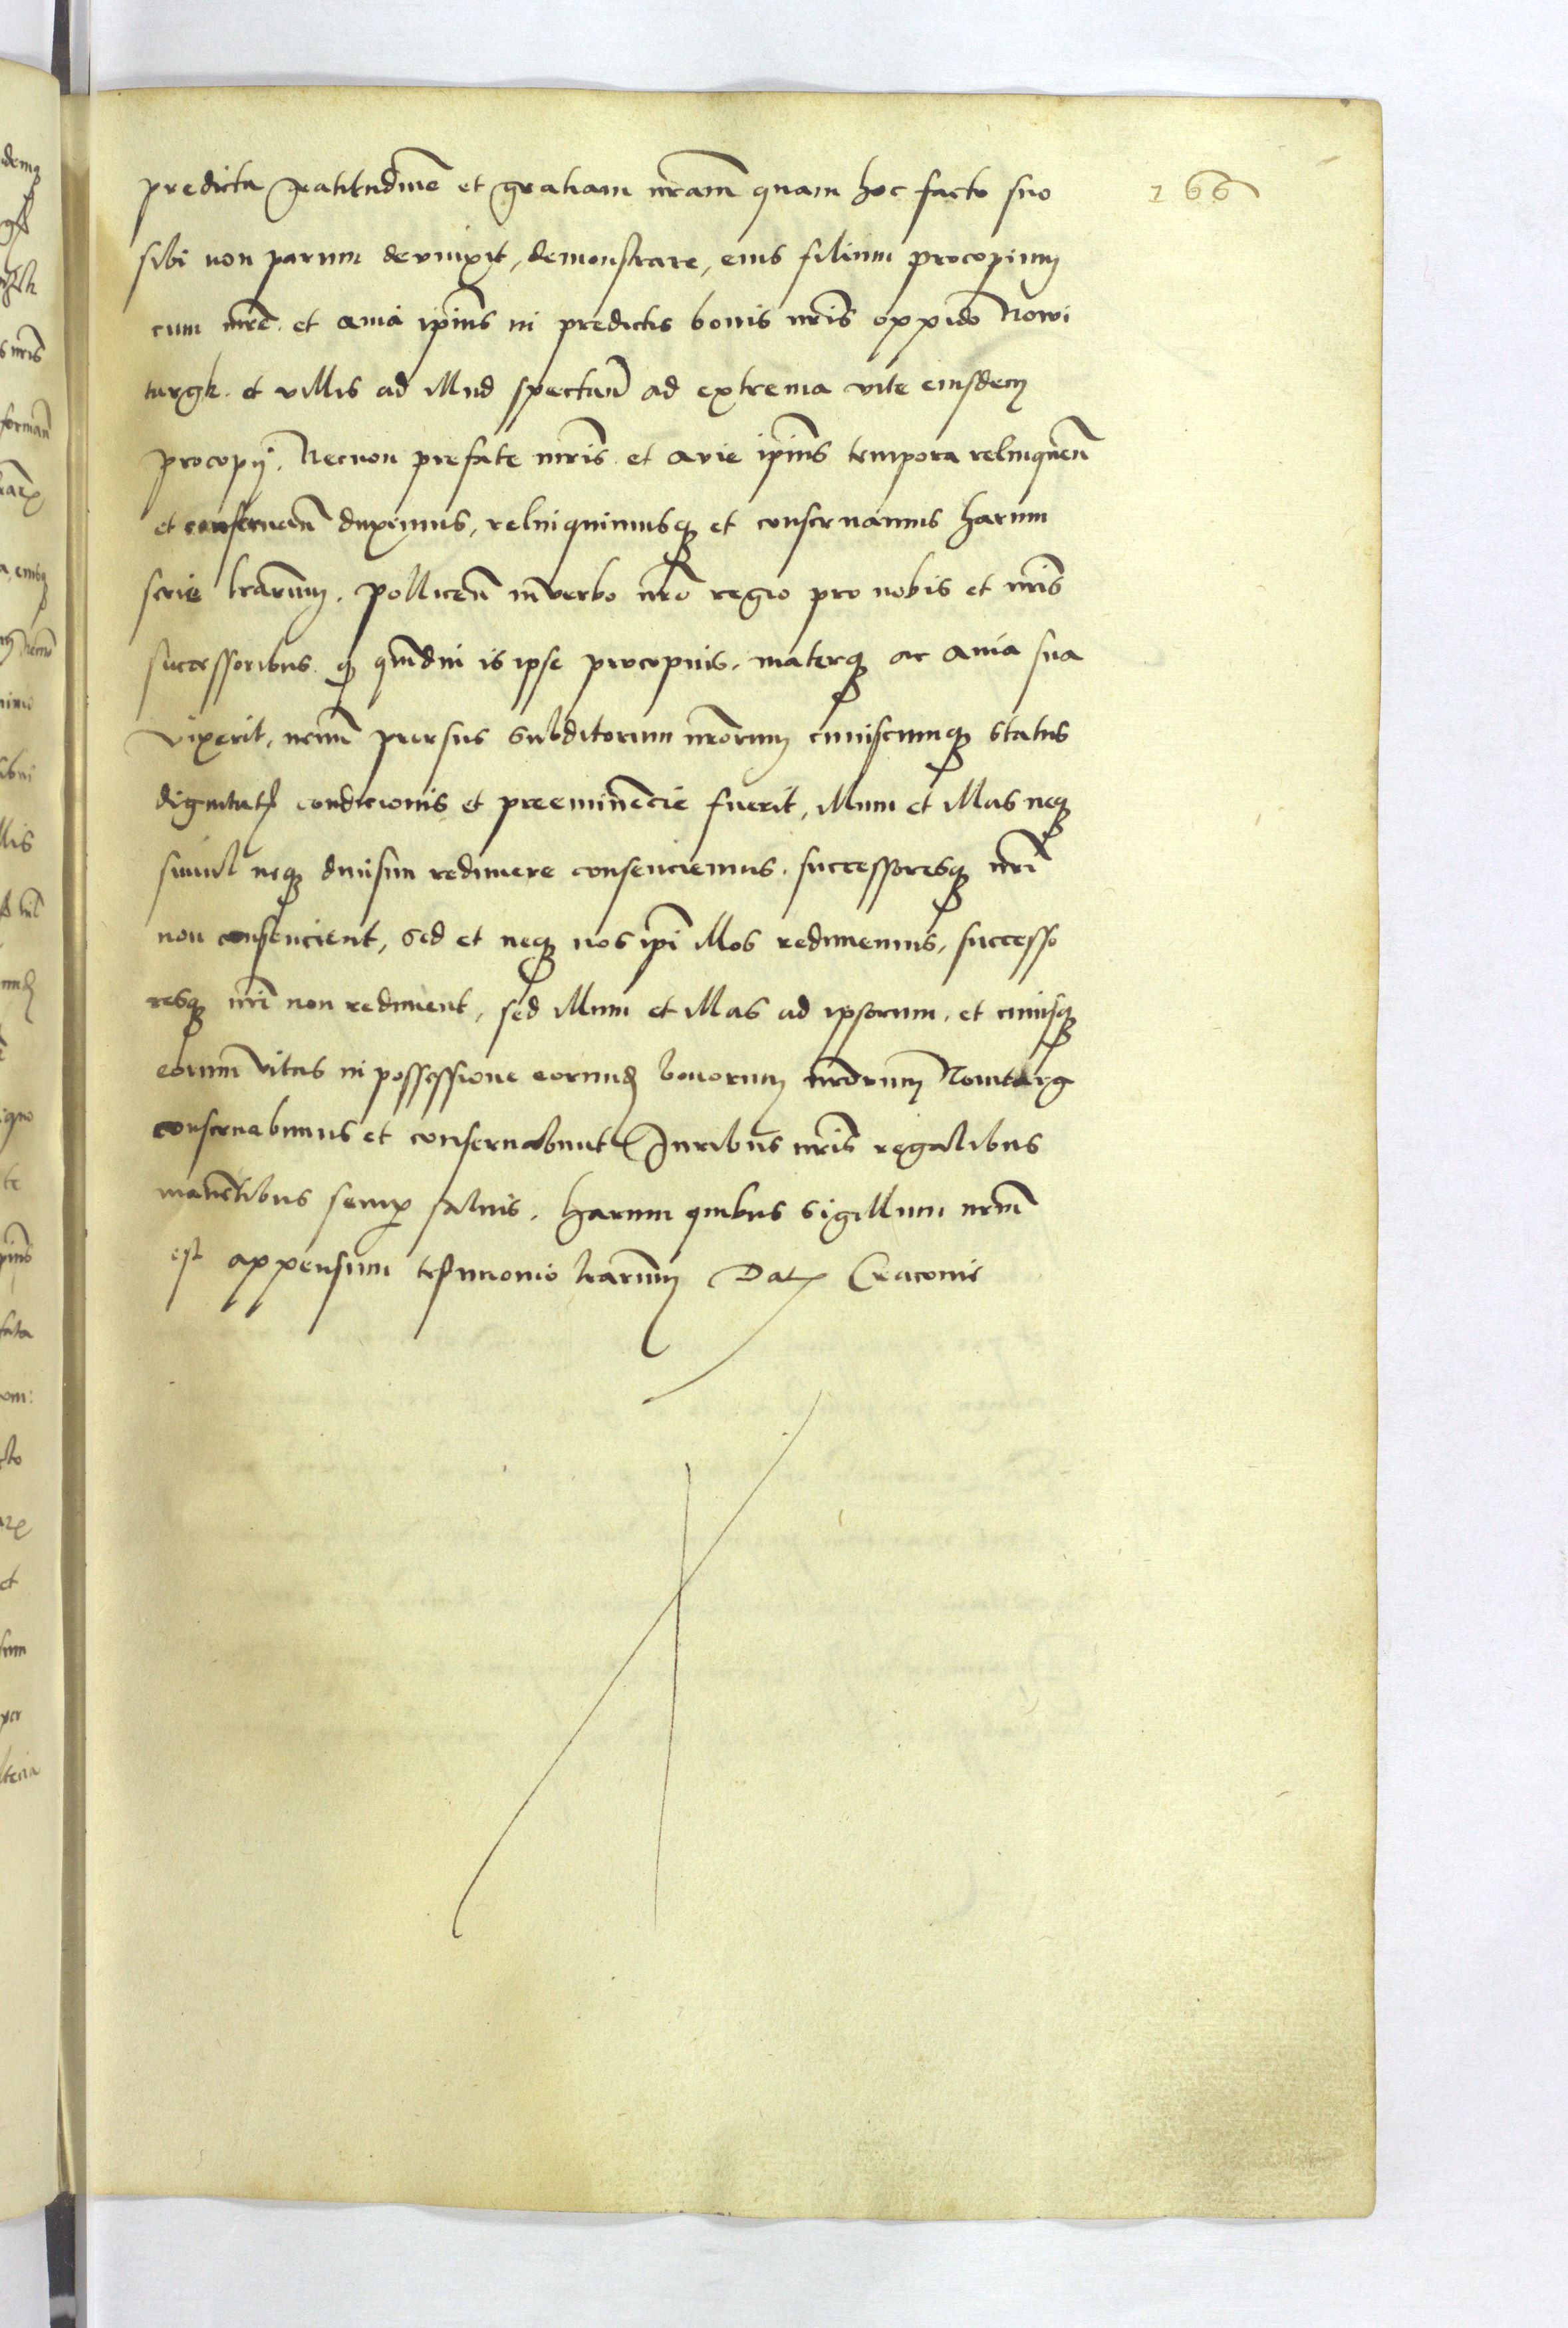 166
predicta gratitudinē et gratiam nr̄am quam hoc facto suo
sibi non parum devinxit, demonstrare, eius filium procopium
cum mr̄e et auia ip̄ius in predictis bonis nr̄is oppido Nowi
targk. et villis ad illud spectan̄ ad extrema vite eiusdem
procopij. Necnon prefate mr̄is et avie ip̄ius tempora relinquen̄
et conseruan̄ duximus, relinquimusq et conseruamus harum
serie lr̄arum. pollicen̄ in verbo nr̄o regio pro nobis et nr̄is
successoribus q quādiu is ipse procopius, materq ac auia sua
vixerit, nemini prorsus subditorum nr̄orum cuiuscumq status
dignitatis condicionis et preeminēcie fuerit, illum et illas neq
simul neq diuisim redimere consenciemus. successoresq nr̄i
non consencient, sed et neq nos ip̄i illos redimemus, successo
resq nr̄i non rediment, sed illum et illas ad ipsorum. et cuiusq
eorum vitas in possessione eorund bonorum nr̄orum Nowitarg
conseruabimus et conseruabunt Juribus nr̄is regalibus
manētibus semp saluis. harum quibus sigillum nr̄um
est appensum testimonio lr̄arum Dat Cracovie